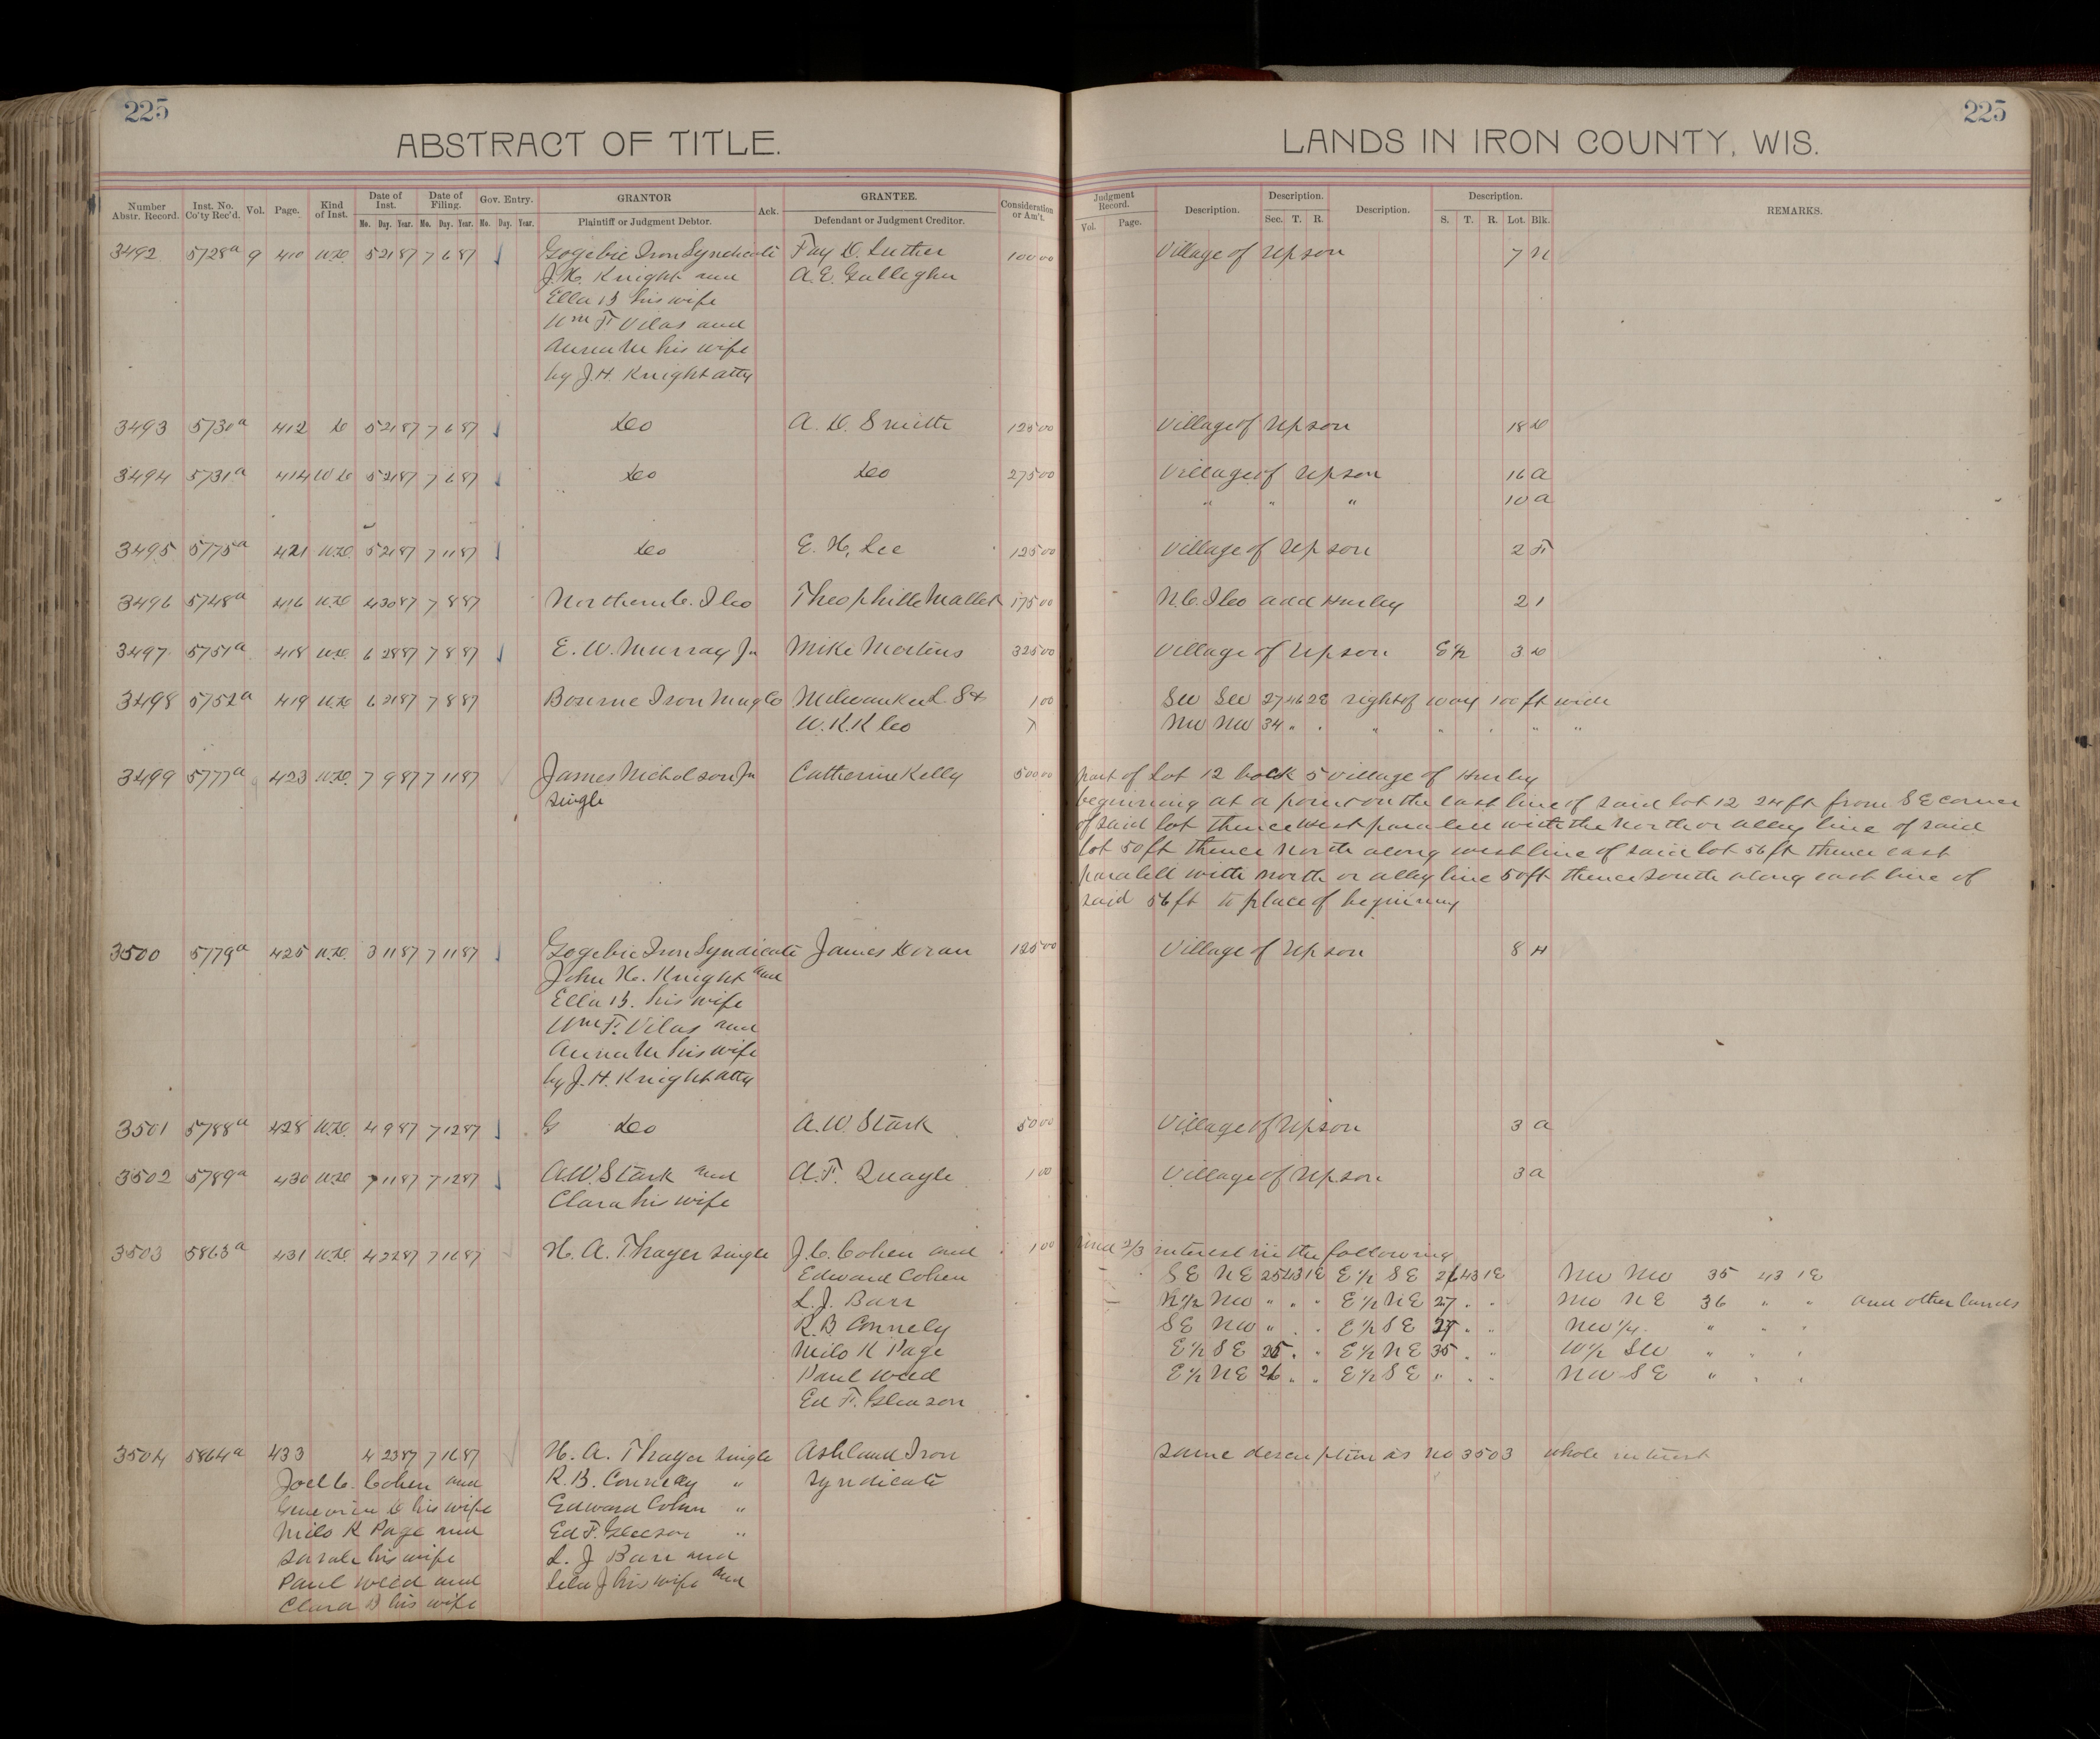 225
ABSTRACT OF TITLE.
Number Abstr. Record. Inst. No. Co'ty Rec'd. Vol. Page. Kind of Inst. Date of Inst. Mo. Day. Year. Date of Filing. Mo. Day. Year. Gov. Entry. Mo. Day. Year. GRANTOR Plaintiff or Judgment Debtor. Ack. GRANTEE. Defendant or Judgment Creditor. Consideration or Am't.
3492 5728a 9 410 W.D. 5 21 87 7 6 87 Gogebic Iron Syndicate Fay D. Luther 100 00
J.H. Knight and A.E. Gallegher
Ella B his wife
Wm F Vilas and
Anna M his wife
by J.H. Knight atty
3493 5730a 412 D 5 21 87 7 6 87 Do A. D. Smith 125 00
3494 5731a 414 W D 5 21 87 7 6 87 Do Do 275 00
3495 5775a 421 W.D. 5 21 87 7 11 87 Do E. H. Lee 125 00
3496 5748a 416 W.D. 4 30 87 7 8 87 Northern C. I Co Theophille Mallet 175 00
3497 5751a 418 W.D. 6 28 87 7 8 87 E. W. Murray Jr Mike Mertins 325 00
3498 5752a 419 W.D. 6 21 87 7 8 87 Bourne Iron Mng Co Milwaukee L. S & 1 00
W. R.R Co
3499 5777a 423 W.D. 7 9 87 7 11 87 James Nicholson Jr Catherine Kelly 500 00
single
3500 5779a 425 W.D. 3 11 87 7 11 87 Gogebic Iron Syndicate James Doran 125 00
John H. Knight and
Ella B. his wife
Wm F. Vilas and
Anna M his wife
by J.H. Knight atty
3501 5788a 428 W.D. 4 9 87 7 12 87 G Do A.W. Stark 50 00
3502 5789a 430 W.D. 7 11 87 7 12 87 A.W. Stark and A.F. Quayle 1 00
Clara his wife
3503 5863a 431 W.D. 4 22 87 7 16 87 H. A. Thayer single J.C. Cohen and 1 00
Edward Cohen
L. J. Barr
R B Connely
Milo K Page
Paul Weed
Ed F. Gleason
3504 5864a 433 4 23 87 7 16 87 H. A. Thayer single Ashland Iron
Joel C. Cohen and R. B. Connelly " Syndicate
D his wife Edward Cohen "
Milo K Page and Ed F. Gleeson "
Sarah his wife L. J Barr and
Paul Weed and Lela J his wife and
Clara B his wife
225
LANDS IN IRON COUNTY, WIS.
Judgment Record. Vol. Page. Description. Description. Sec. T. R. Description. Description. S. T. R. Lot. Blk. REMARKS.
Village of Upson 7 N
Village of Upson 18 D
Village of Upson 16 A
" " " 10 A
Village of Upson 2 F
N.C. I Co add Hurley 2 1
Village of Upson E½ 3 D
SW SW 27 46 2E right of way 100 ft wide
NW NW 34 " " " " " " "
part of Lot 12 block 5 village of Hurley
beginning at a point on the east line of said lot 12 24 ft from SE corner
of said lot thence west paralell with the north or alley line of said
lot 50 ft thence north along west line of said lot 56 ft thence east
paralell with north or alley line 50 ft thence south along east line of
said 56 ft to place of beginning
Village of Upson 8 H
Village of Upson 3 A
Village of Upson 3 A
und 2/3 interest in the following
SE NE 25 43 1E E½ SE 26 43 1E NW NW 35 43 1E
N½ NW " " " E½ NE 27 " " NW NE 36 " " and other lands
SE NW " " " E½ SE 27 " " NW¼ " " "
E½ SE 25 " " E½ NE 35 " " W½ SW " " "
E½ NE 26 " " E½ SE " " " NW SE " " "
same description as no 3503 whole interest